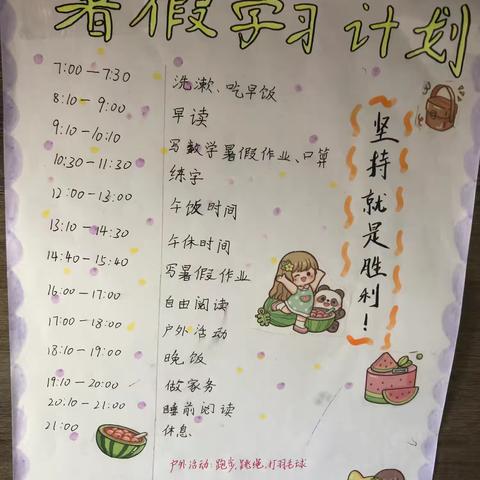 暑假学习计划
7:00—7:30 洗漱、吃早饭
8:10—9:00 早读
9:10—10:10 写数学暑假作业、口算
10:30—11:30 练字
12:00—13:00 午饭时间
13:10—14:30 午休时间
14:40—15:40 写暑假作业
16:00—17:00 自由阅读
17:00—18:00 户外活动
18:10—19:00 晚饭
19:10—20:00 做家务
20:10—21:00 睡前阅读
21:00 休息
坚持就是胜利！
户外活动：跑步、跳绳、打羽毛球